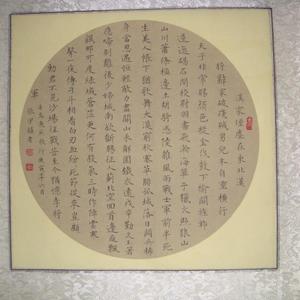 漢家煙塵在東北漢
將辭家破殘賊男兒本自重橫行
天子非常賜顏色摐金伐鼓下榆關旌旆
逶迤碣石間校尉羽書飛瀚海單于獵火照狼山
山川蕭條極邊土胡騎憑陵雜風雨戰士軍前半死
生美人帳下猶歌舞大漠窮秋塞草腓孤城落日鬥兵稀
身當恩遇恒輕敵力盡關山未解圍鐵衣遠戍辛勤久玉箸
應啼別離後少婦城南欲斷腸征人薊北空回首邊庭飄
颻那可度絕域蒼茫更何有殺氣三時作陣雲寒
聲一夜傳刁斗相看白刃血紛紛死節從來豈顧
勳君不見沙場征戰苦至今猶憶李將
軍